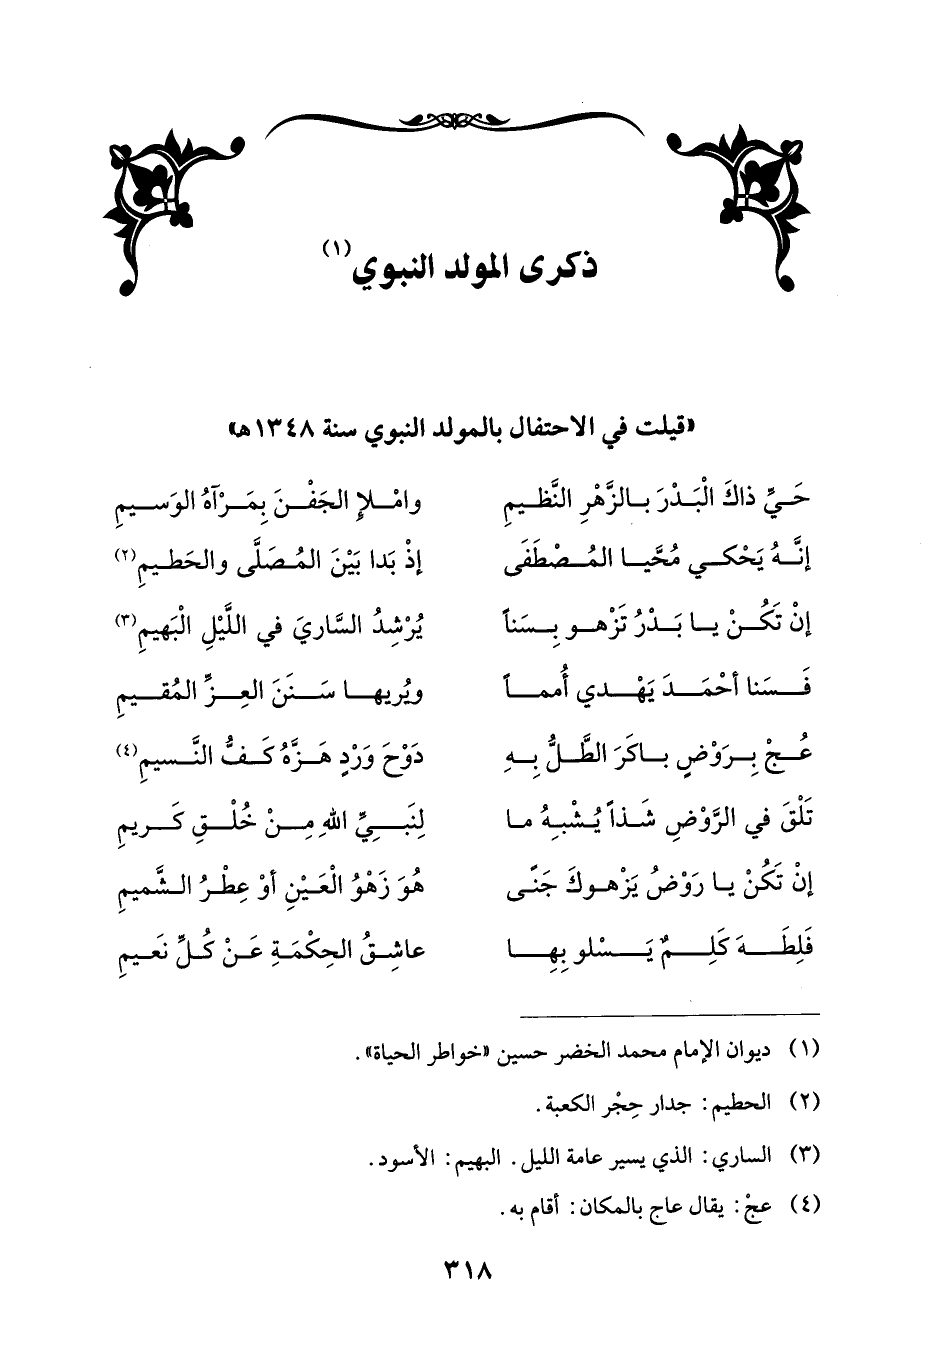 ذكرى المولد النبوي(١)
«قيلت في الاحتفال بالمولد النبوي سنة ١٣٤٨هـ»
حَيِّ ذاكَ الْبَدْرَ بالزَّهْرِ النَّظيمِ وامْلإِ الجَفْنَ بِمَرْآهُ الوَسيمِ
إنَّهُ يَحْكي مُحَيا المُصْطَفَى إذْ بَدا بَيْنَ المُصَلَّى والحَطيمِ(٢)
إنْ تَكُنْ يا بَدْرُ تَزْهو بِسَناً يُرْشِدُ السَّاريَ في اللَّيْلِ الْبَهيمِ(٣)
فَسَنا أحْمَدَ يَهْدي أُمماً ويُريها سَنَنَ العِزِّ المُقيمِ
عُجْ بِرَوْضٍ باكَرَ الطَّلُّ بِهِ دَوْحَ وَرْدٍ هَزَّهُ كَفُّ النَّسيمِ(٤)
تَلْقَ في الرَّوْضِ شَذاً يُشْبِهُ ما لِنَبيِّ اللهِ مِنْ خُلْقٍ كَريمِ
إنْ تَكُنْ يا رَوْضُ يَزْهوكَ جَنًى هُوَ زَهْوُ الْعَيْنِ أوْ عِطْرُ الشَّميمِ
فَلِطَهَ كَلِمٌ يَسْلو بِها عاشِقُ الحِكْمَةِ عَنْ كُلِّ نَعيمِ
(١) ديوان الإمام محمد الخضر حسين «خواطر الحياة».
(٢) الحطيم: جدار حِجْر الكعبة.
(٣) الساري: الذي يسير عامة الليل. البهيم: الأسود.
(٤) عجْ: يقال عاج بالمكان: أقام به.
٣١٨